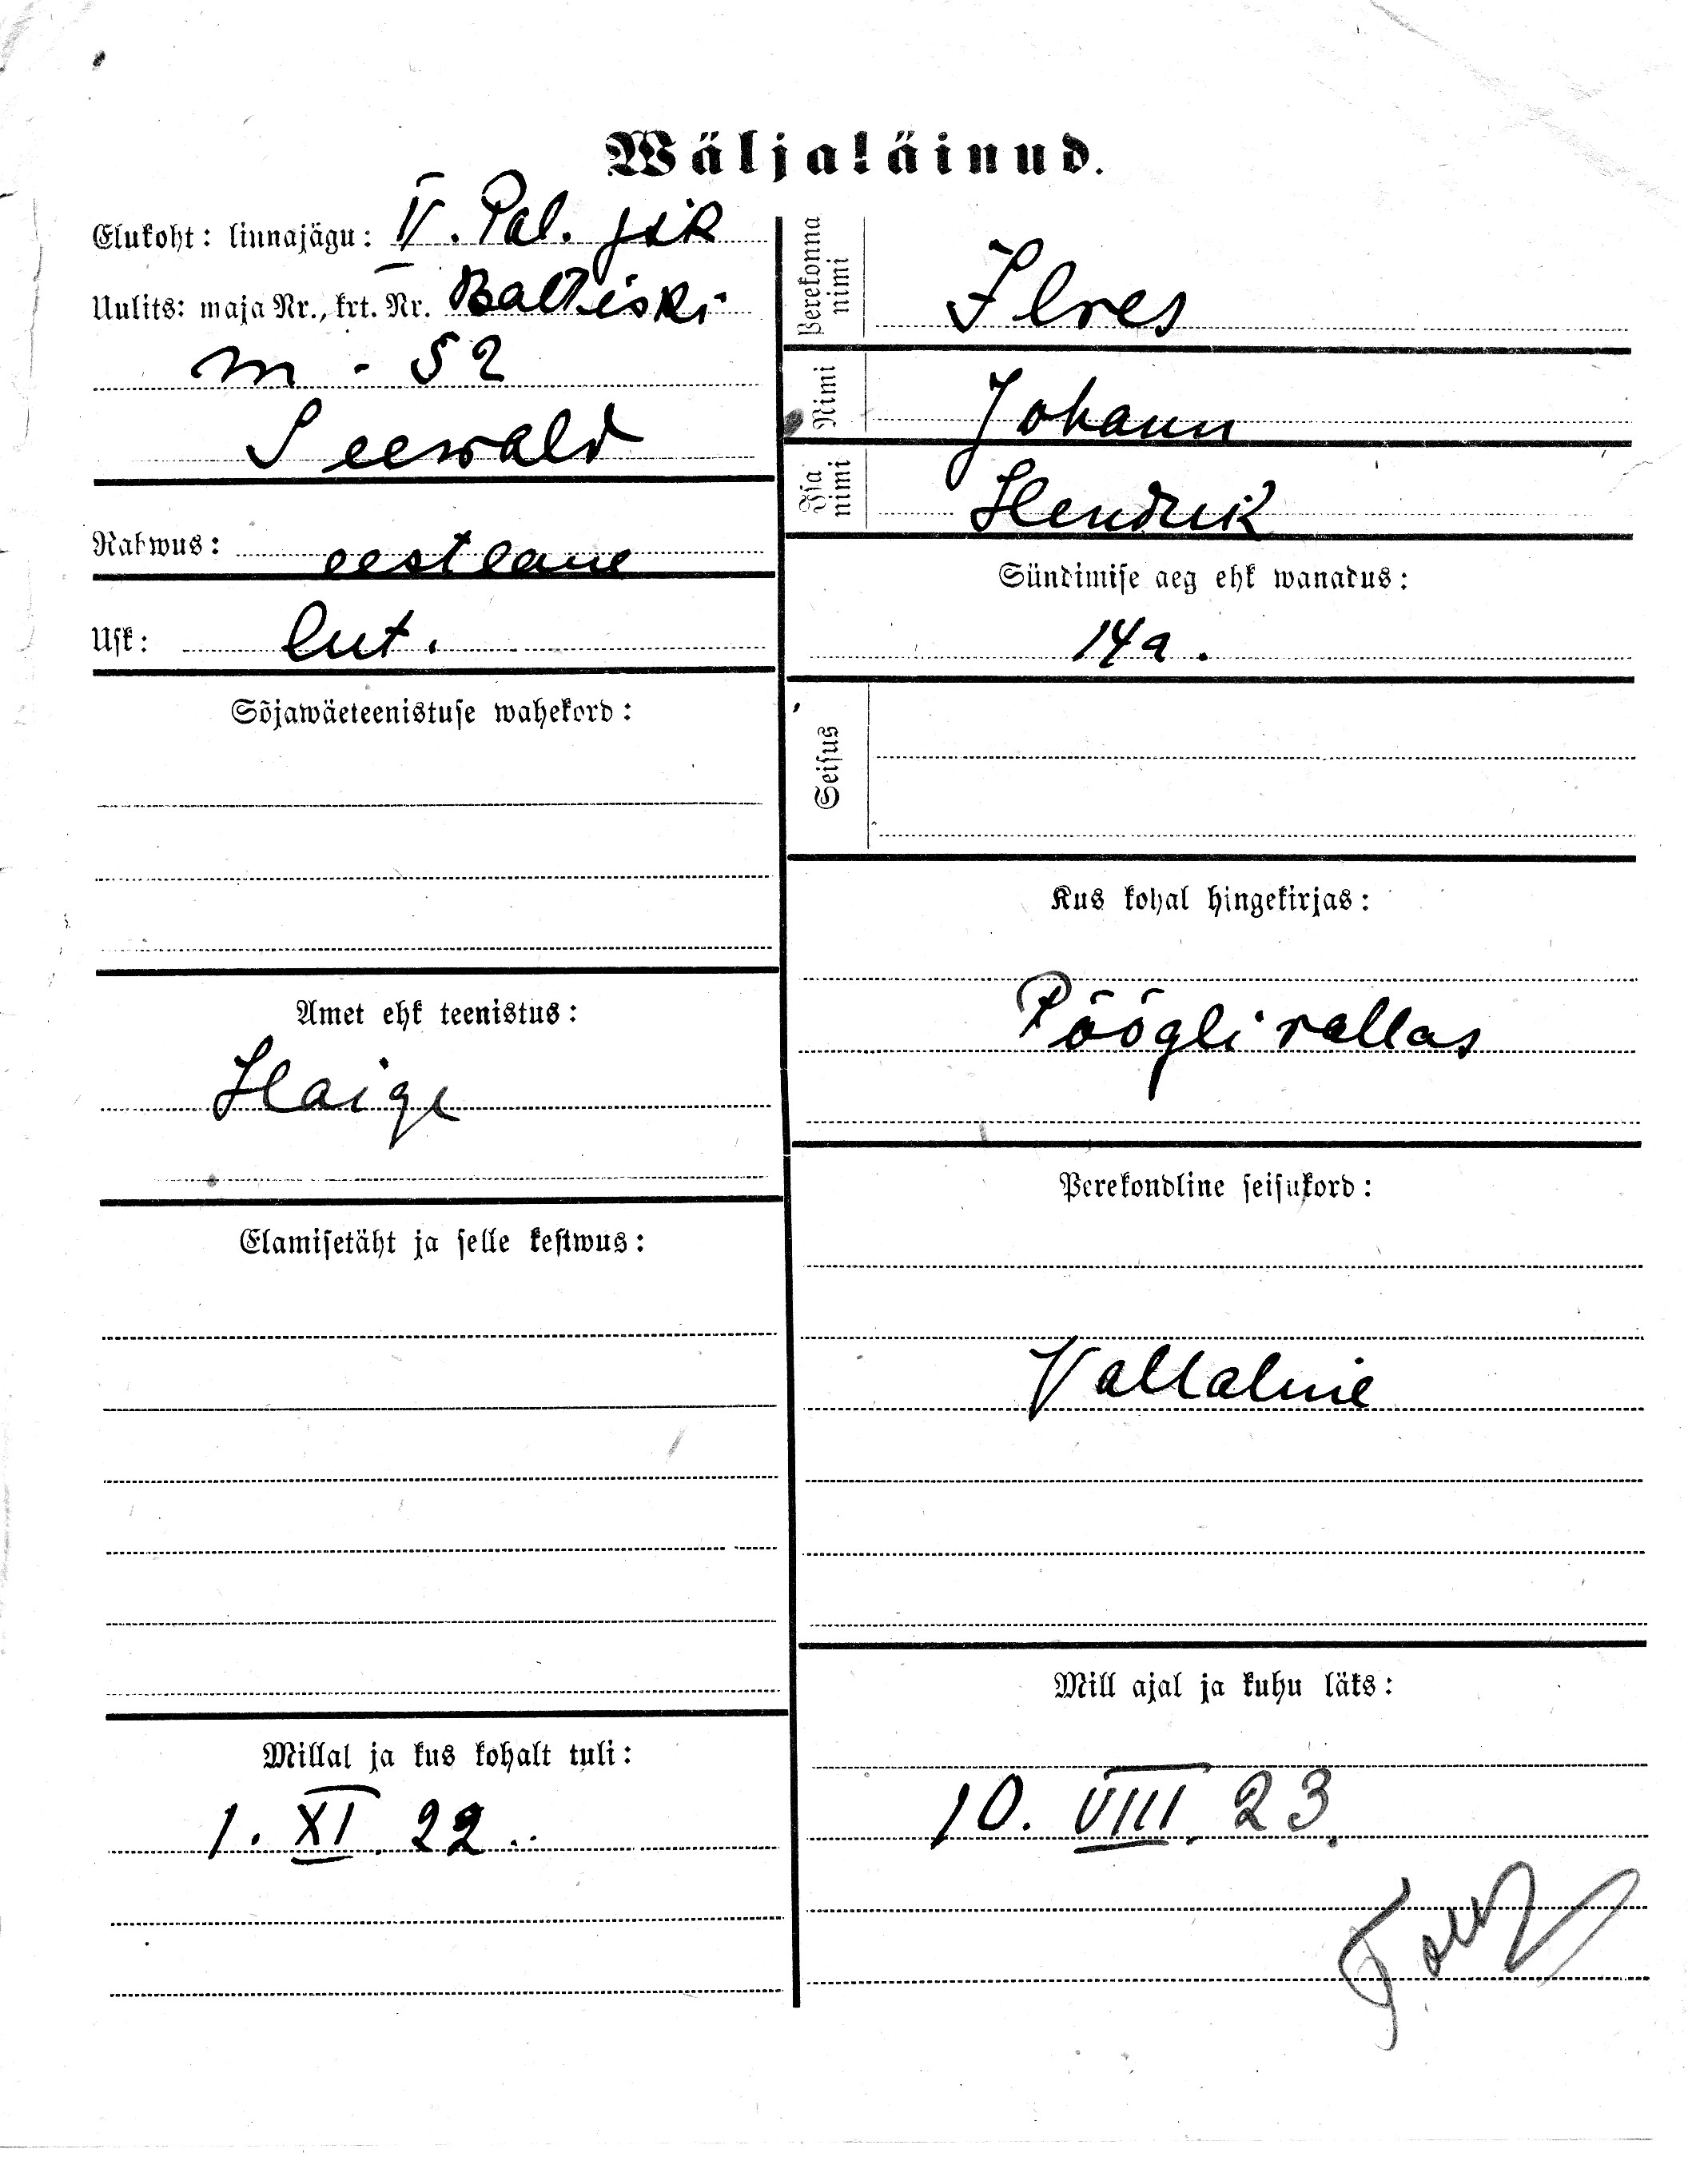 Wäljaläinud.
Elukoht: linnajägu: V. Pol. jsk
Uulits: maja Nr., krt. Nr. Baltiski
m - 52
Seewald
Rahwus: eestlane
Usk: lut.
Sõjawäeteenistuse wahekord:
Amet ehk teenistus:
Haige
Elamisetäht ja selle kestwus:
Millal ja kus kohalt tuli:
1. XI. 22.
Perekonna nimi Ilves
Nimi Johann
Isa nimi Hendrik
Sündimise aeg ehk wanadus:
14 a.
Seisus
Kus kohal hingekirjas:
Pöögli vallas
Perekondline seisukord:
Vallaline
Mill ajal ja kuhu läks:
10. VIII. 23.